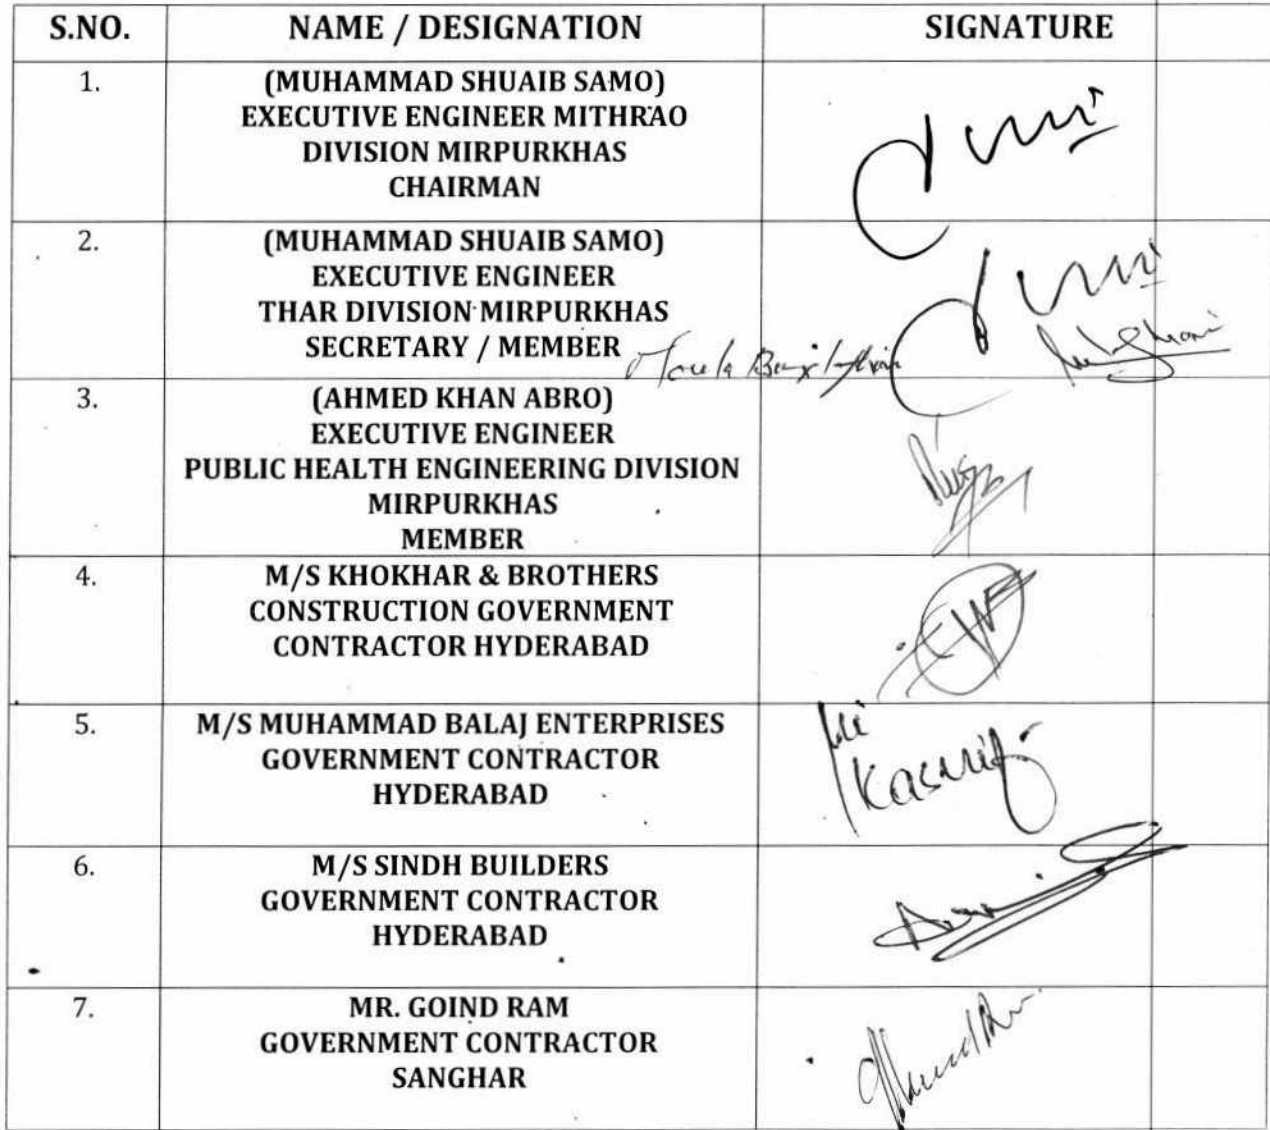 S.NO. NAME / DESIGNATION SIGNATURE
1. (MUHAMMAD SHUAIB SAMO)
EXECUTIVE ENGINEER MITHRAO
DIVISION MIRPURKHAS
CHAIRMAN
2. (MUHAMMAD SHUAIB SAMO)
EXECUTIVE ENGINEER
THAR DIVISION MIRPURKHAS
SECRETARY / MEMBER
3. (AHMED KHAN ABRO)
EXECUTIVE ENGINEER
PUBLIC HEALTH ENGINEERING DIVISION
MIRPURKHAS
MEMBER
4. M/S KHOKHAR & BROTHERS
CONSTRUCTION GOVERNMENT
CONTRACTOR HYDERABAD
5. M/S MUHAMMAD BALAJ ENTERPRISES
GOVERNMENT CONTRACTOR
HYDERABAD
6. M/S SINDH BUILDERS
GOVERNMENT CONTRACTOR
HYDERABAD
7. MR. GOIND RAM
GOVERNMENT CONTRACTOR
SANGHAR